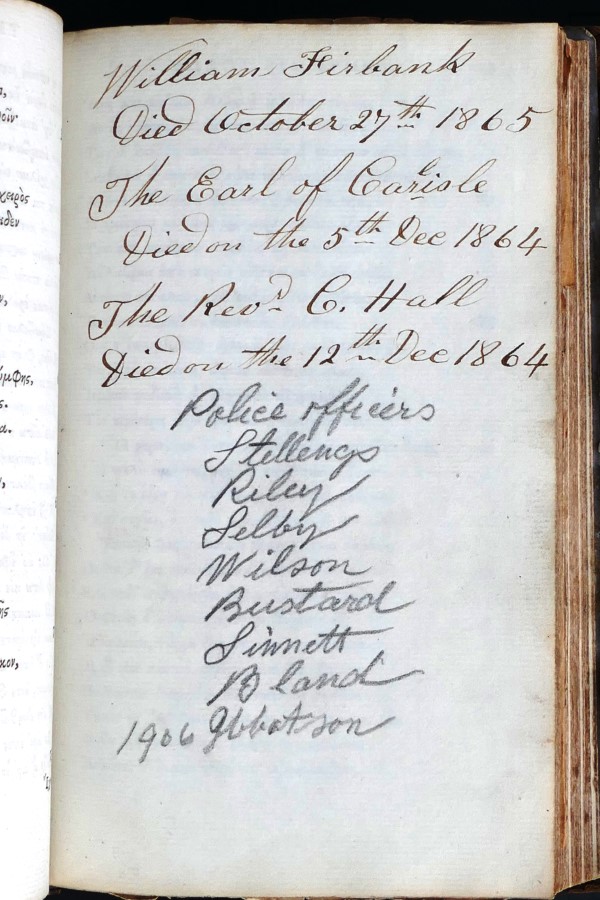 William Firbank
Died October 27th 1865
The Earl of Carlisle
Died on the 5th Dec 1864
The Revd C. Hall
Died on the 12th Dec 1864
Police officers
Stellengs
Riley
Selby
Wilson
Bustard
Sinnett
Bland
1906 Ibbotson